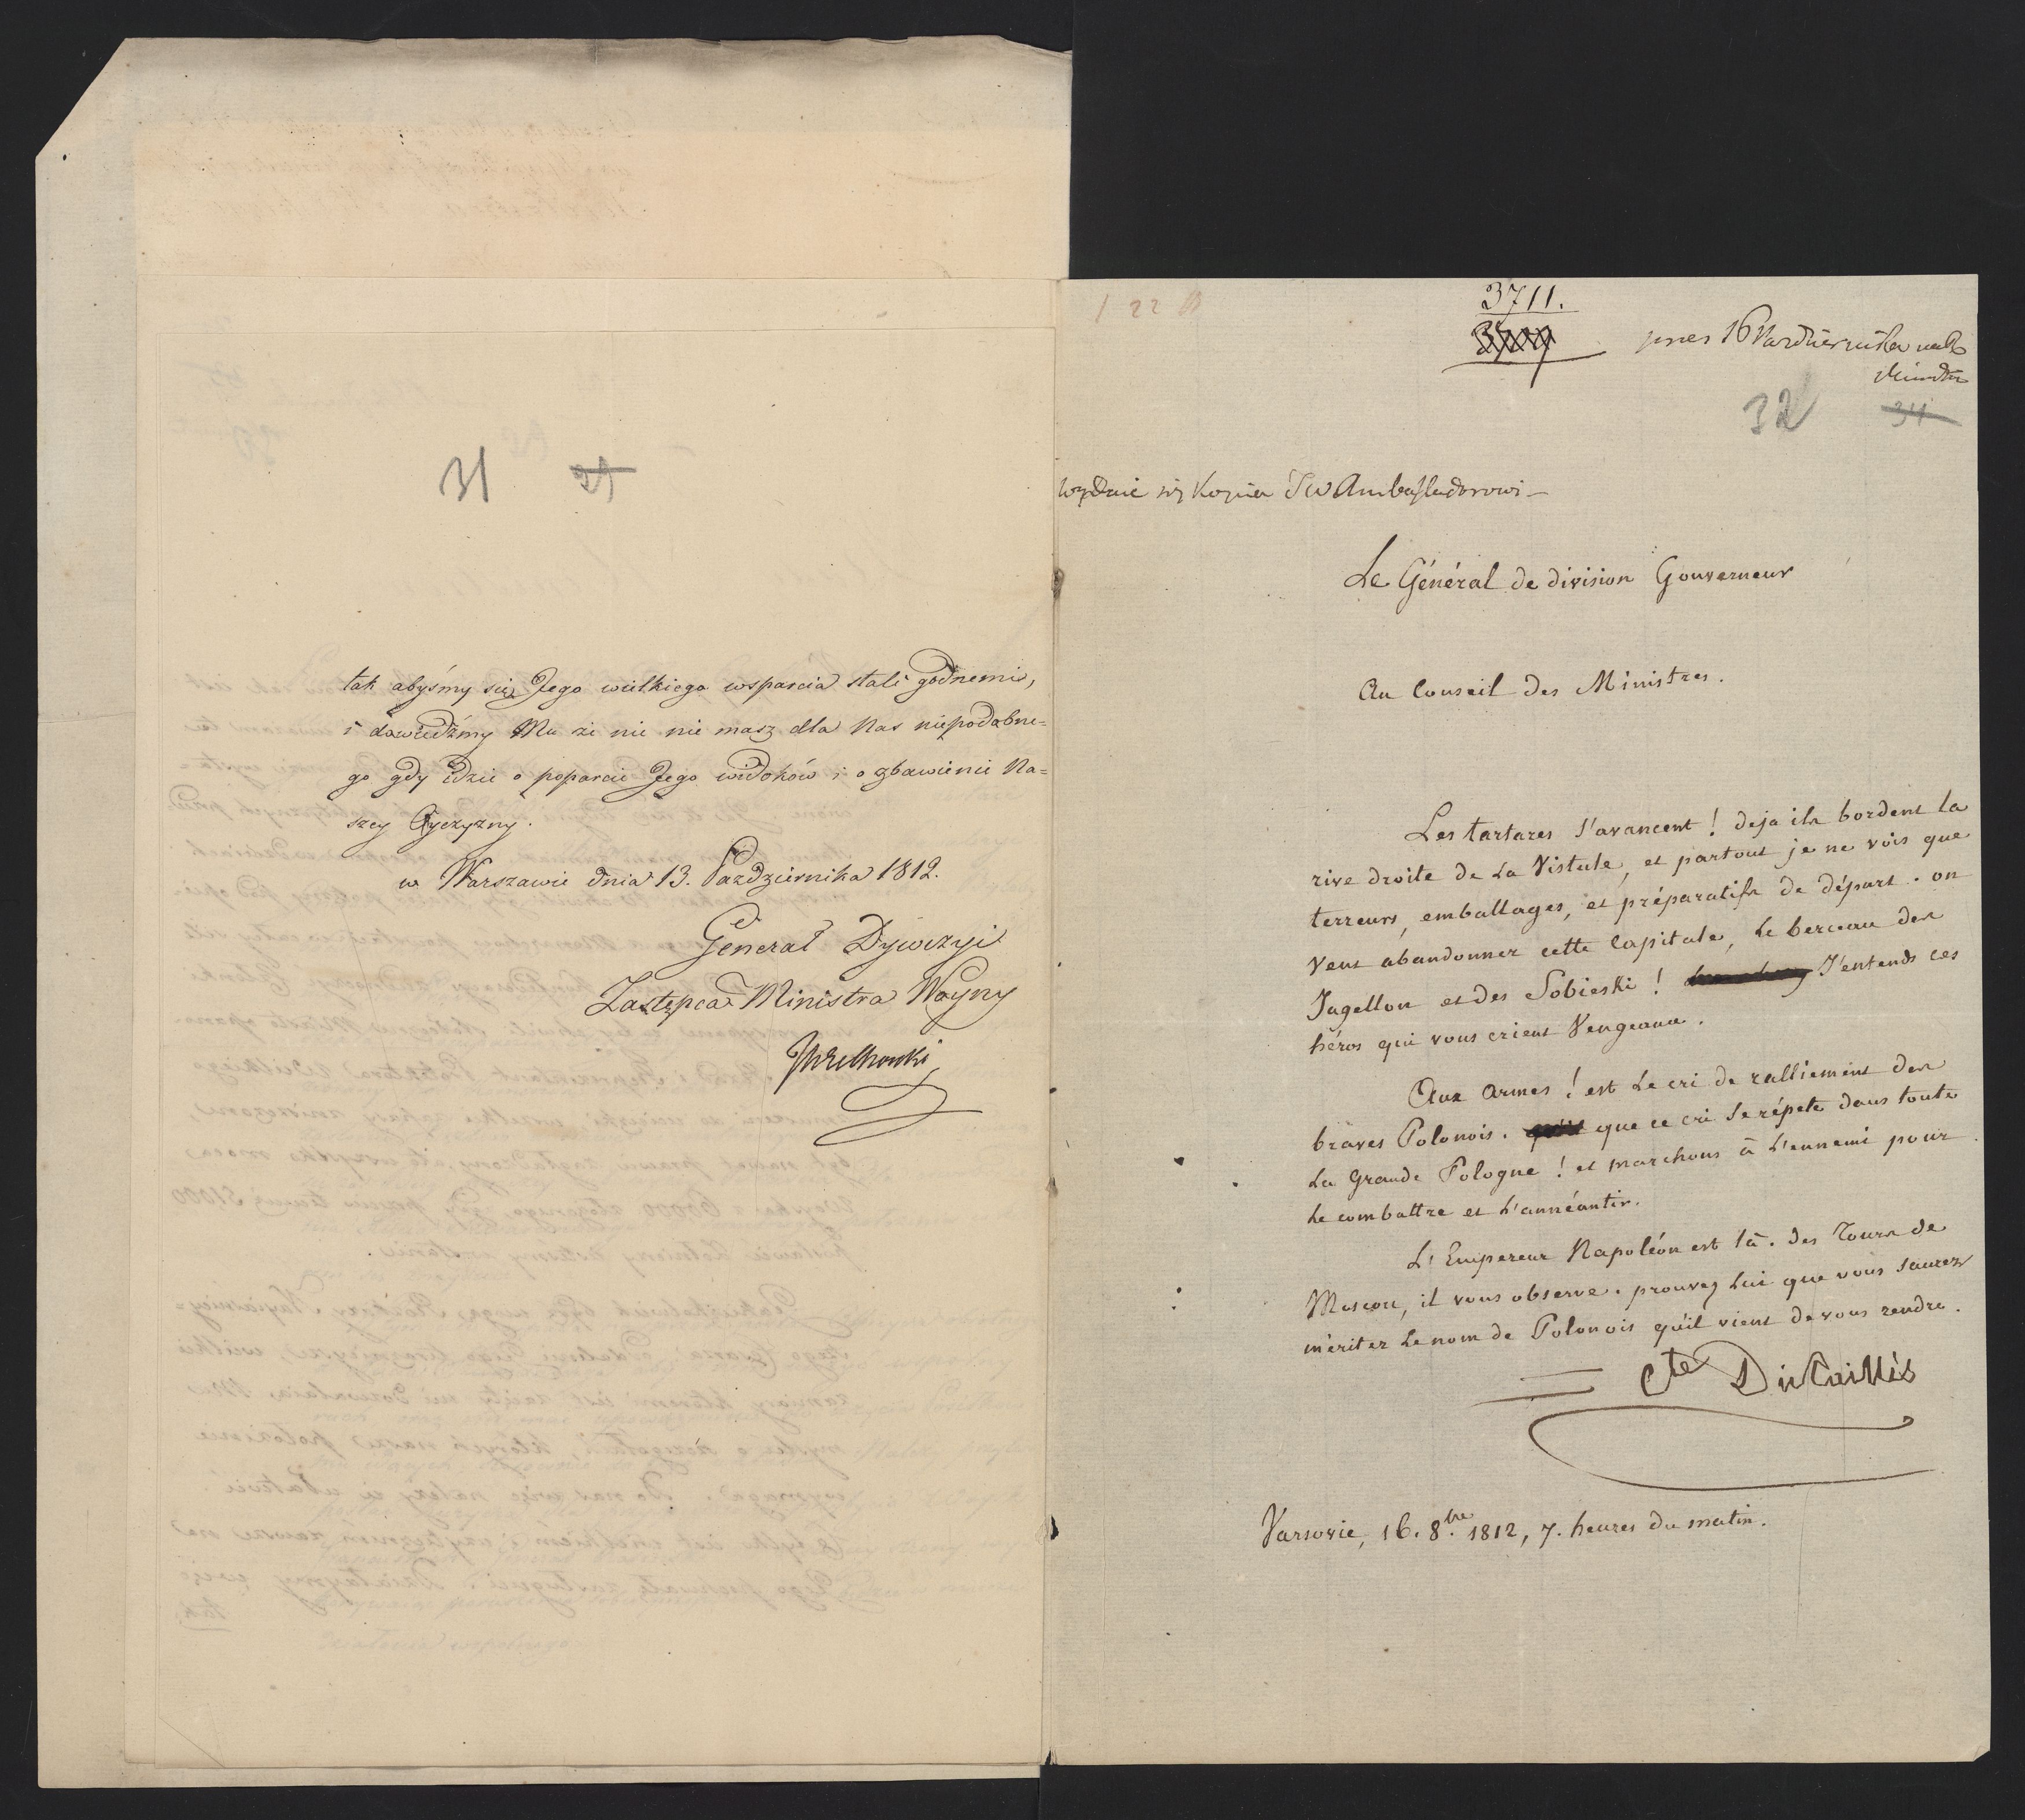 31 29
tak abyśmy się Jego wielkiego wsparcia stali godnemi,
i dowiedźmy Mu że nic nie masz dla Nas niepodobne=
go gdy idzie o poparcie Jego widoków i o zbawienie Na=
szey Oyczyzny.
w Warszawie dnia 13. Października 1812.
Generał Dywizyi
Zastępca Ministra Woyny
Wielhorski
122
3711.
16 Października
32 34
wydaie się Kopia JW Ambassadorowi –
Le Général de division Gouverneur
Au Conseil des Ministres.
Les tartares s'avancent ! deja ils bordent la
rive droite de la Vistule, et partout je ne vois que
terreurs, emballages, et préparatifs de départ. on
veut abandonner cette Capitale, le berceau des
Jagellon et des Sobieski ! J'entends ces
héros qui vous crient Vengeance.
Aux Armes ! est le cri de ralliement des
braves Polonois. que ce cri se répete dans toute
la Grande Pologne ! et marchons à l'ennemi pour
le combattre et l'annéantir.
L'Empereur Napoléon est là. des Tours de
Moscou, il vous observe. prouvez lui que vous saurez
mériter le nom de Polonois qu'il vient de vous rendre.
Cte DuTaillis
Varsovie, 16. 8.bre 1812, 7. heures du matin.